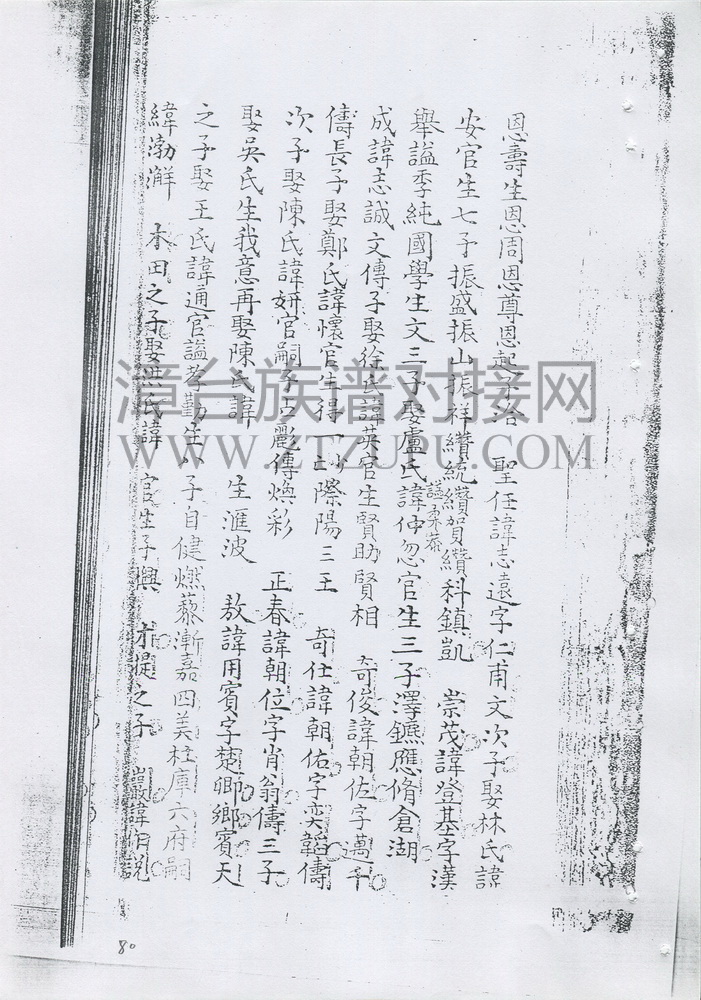 恩壽生恩周恩尊恩起子治 聖任諱志遠字仁甫文次子娶林氏諱
安官生七子振盛振山振祥纘統纘賀纘科鎮凱 崇茂諱登基字漢
舉謚季純國學生文三子娶盧氏諱伸忍官生三子澤鑣應脩倉湖
成諱志誠文傳子娶徐氏諱英官生賢助賢相 奇俊諱朝佐字萬千
儔長子娶鄭氏諱懷官生得一際陽三王 奇仕諱朝佑字奕韜儔
次子娶陳氏諱妍官嗣子占麗傳煥彩 正春諱朝位字肖翁儔三子
娶吳氏生我意再娶陳氏諱 生滙波 敖諱用賓字楚卿鄉賓天
之子娶王氏諱通官謚孝勤生八子自健燃藜漸嘉四美柱庫六府嗣
緯渤澥 本田之子娶洪氏諱 官生子興 才提之子 巖諱作說
漳台族谱对接网
WWW.ZTZUPU.COM
80